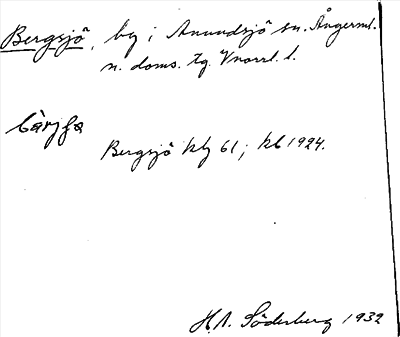 Bergsjö, by i Anundsjö sn. Ångerml.
n. doms. tg. Vnorrl. l.
Bergsjö klj 61; kb 1924.
H.A. Söderberg 1932